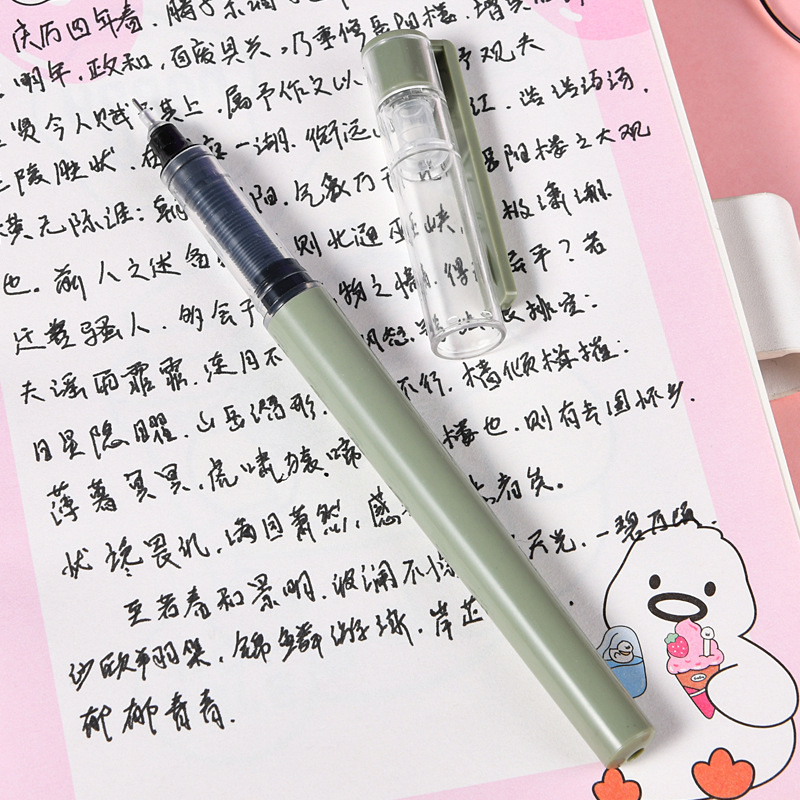 庆历四年春,滕子京谪
明年,政和,百废具兴,乃重修岳阳楼,增
贤今人赋 其上,属予作文以 予观夫
陵胜状,在 一湖.衔远 江,浩浩汤汤,
横无际涯;朝 阳,气象万千 岳阳楼之大观
也.前人之述备 则北通巫峡, 极潇湘.
迁客骚人,多会于 物之情, 得 异乎?若
夫淫雨霏霏,连月不 怒, 浪排空;
日星隐曜,山岳潜形. 不行,樯倾楫摧;
薄暮冥冥,虎啸猿啼 楼也,则有去国怀乡.
状谗畏讥,满目萧然,感 者矣.
至若春和景明,波澜不惊 天光,一碧万顷.
沙鸥翔集,锦鳞游泳.岸芷
郁郁青青.